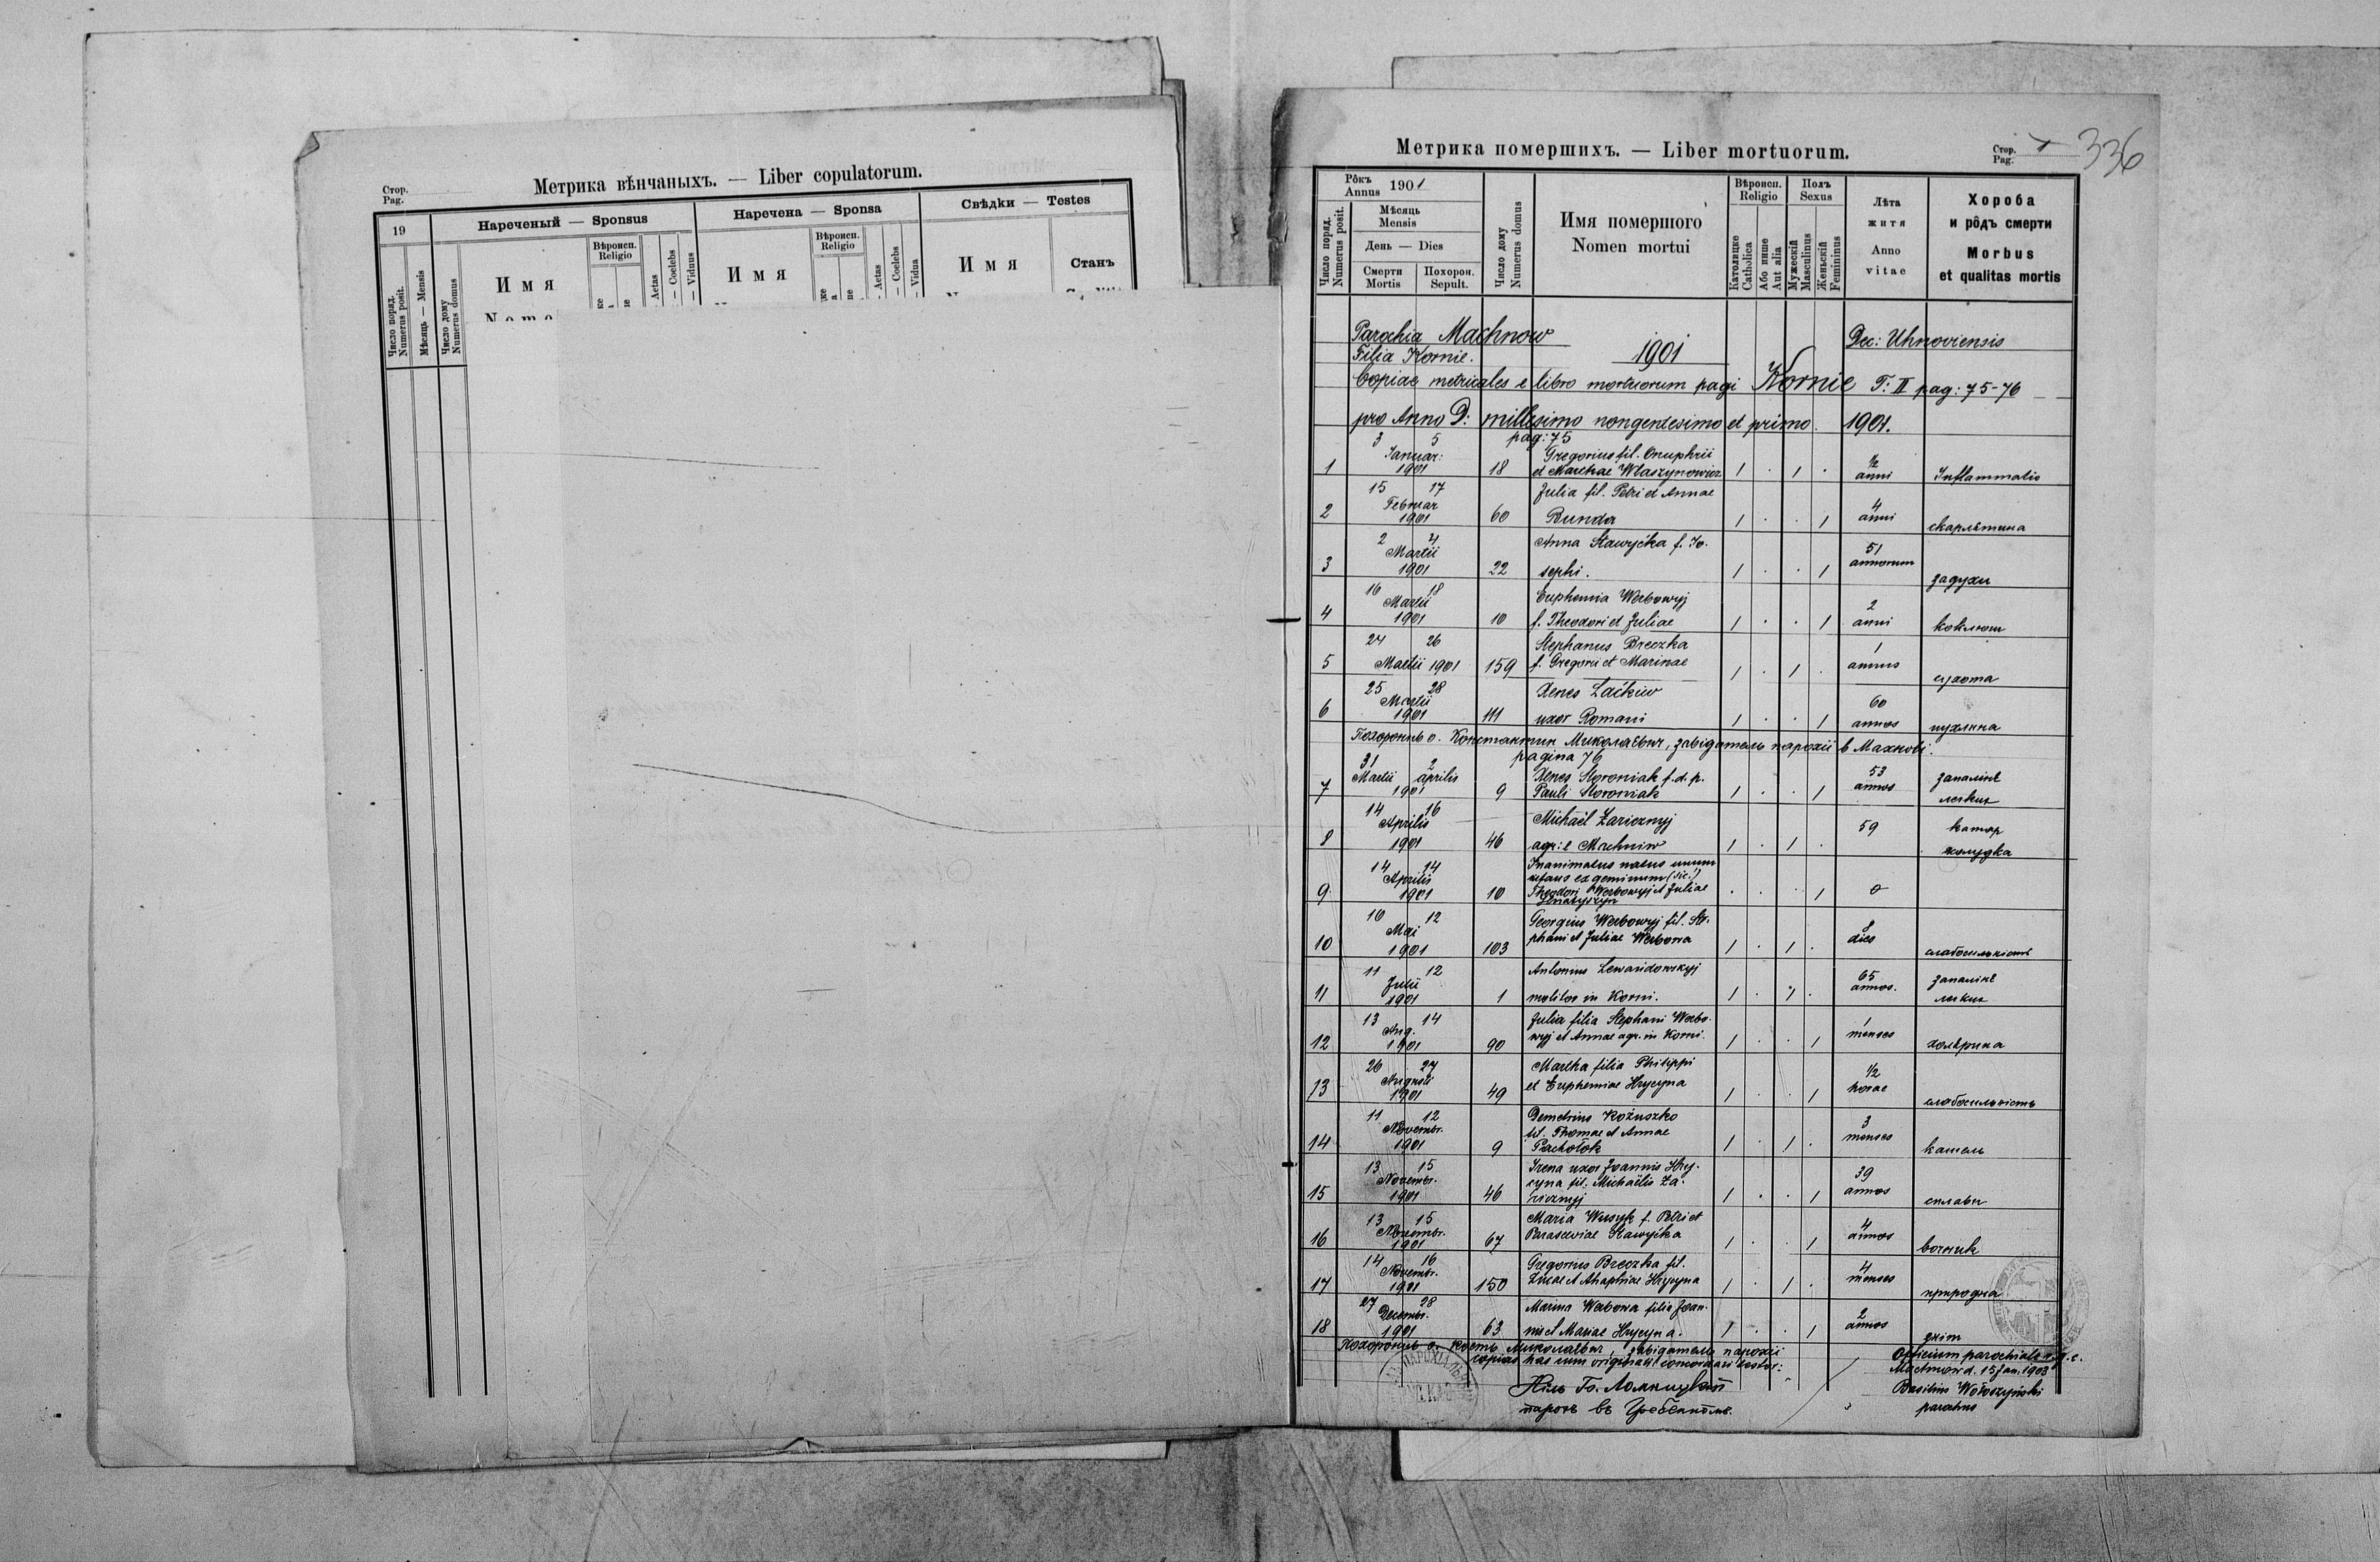 Стор.
Pag.
Метрика вѣнчаныхъ. — Liber copulatorum.
19
Нареченый — Sponsus
Наречена — Sponsa
Свѣдки — Testes
Число поряд.
Numerus posit.
Мѣсяць — Mensis
Число дому
Numerus domus
Имя
Вѣроисп.
Religio
Aetas
Coelebs
Viduus
Имя
Вѣроисп.
Religio
Aetas
Coelebs
Vidua
Имя
Станъ
Метрика помершихъ. — Liber mortuorum.
Стор.
Pag.
336
Рôкъ
Annus 1901
Число поряд.
Numerus posit.
Мѣсяць
Mensis
День — Dies
Смерти
Mortis
Похорон.
Sepult.
Число дому
Numerus domus
Имя помершого
Nomen mortui
Вѣроисп.
Religio
Католицке
Catholica
Або инше
Aut alia
Полъ
Sexus
Мужескій
Masculinus
Женьскій
Femininus
Лѣта
житя
Anno
vitae
Хороба
и рôдъ смерти
Morbus
et qualitas mortis
Parochia Machnow
Dec: Uhnoviensis
Filia Kornie.
1901
Copiae metricales e libro mortuorum pagi Kornie T: II pag: 75-76
pro Anno D: millesimo nongentesimo et primo. 1901.
pag: 75
3 5
Januar: Gregorius fil. Onuphrii ½
1 1901 18 et Marthae Wlaszynowicz 1 . 1 . anni Inflammatio
15 17 Julia fil. Petri et Annae
Februar 4
2 1901 60 Bunda 1 . . 1 anni скарлѣтина
2 4 Anna Stawyćka f. Jo-
Martii 51
3 1901 22 sephi. 1 . . 1 annorum задухи
16 18 Euphemia Werbowyj
Martii 2
4 1901 10 f. Theodori et Juliae 1 . . 1 anni коклюш
24 26 Stephanus Breczka 1
5 Martii 1901 159 f. Gregorii et Marinae 1 . 1 . annus сухота
25 28 Xenes Laćkiw
Martii 60
6 1901 111 uxor Romani 1 . . 1 annos пухлина
Похоронив о. Константин Миколаевич, завідатель парохії в Махнові.
pagina 76
31 2 Xenes Storoniak f. d. p. 53 запалінє
Martii aprilis
7 1901 9 Pauli Storoniak 1 . . 1 annos легких
14 16 Michaël Zaricznyj
Aprilis 59 катар
8 1901 46 agr: e Machniw 1 . 1 . жолудка
14 14 Inanimatus natus unum
Aprilis infans ex geminum (sic!)
9 1901 10 Theodori Werbowyj et Juliae . . . 1 0
10 12 Georgius Werbowyj fil. Ste-
Mai 8
10 1901 103 phani et Juliae Werbowa 1 . 1 . dies слабосильність
11 12 Antonius Lewandowskyj 65 запалінє
Julii
11 1901 1 molitor in Korni. 1 . 1 . annos. легких
13 14 Julia filia Stephani Werbo- 1
Aug.
12 1901 90 wyj et Annae agr. in Korni. 1 . . 1 menses холѣрина
26 27 Martha filia Philippi ½
Augusti
13 1901 49 et Euphemiae Hrycyna 1 . . 1 horae слабосильність
11 12 Demetrius Kożuszko 3
Novembr. fil. Thomae et Annae
14 1901 9 Pachołok 1 . 1 . menses кашель
13 15 Irena uxor Joannis Hry- 39
Novembr. cyna fil. Michaëlis Za-
15 1901 46 ricznyj 1 . . 1 annos сплави
13 15 Maria Wusyk f. Petri et 4
Novembr.
16 1901 67 Parasceviae Stawyćka 1 . . 1 annos
14 16 Gregorius Breczka fil. 4
Novembr.
17 1901 150 Lucae et Ahaphiae Hrycyna 1 . 1 . menses природна
27 28 Marina Werbowa filia Joan- 2
Decembr.
18 1901 63 nis et Mariae Hrycyna. 1 . . 1 annos
Похоронив о. Кость Миколаевич, завідатель парохії
copias has cum originali concordari testor:
Officium parochiale r. g. c.
Machnow d. 15 Jan. 1903
Basilius Wołoszyński
parochus
парох въ Гребенномъ.